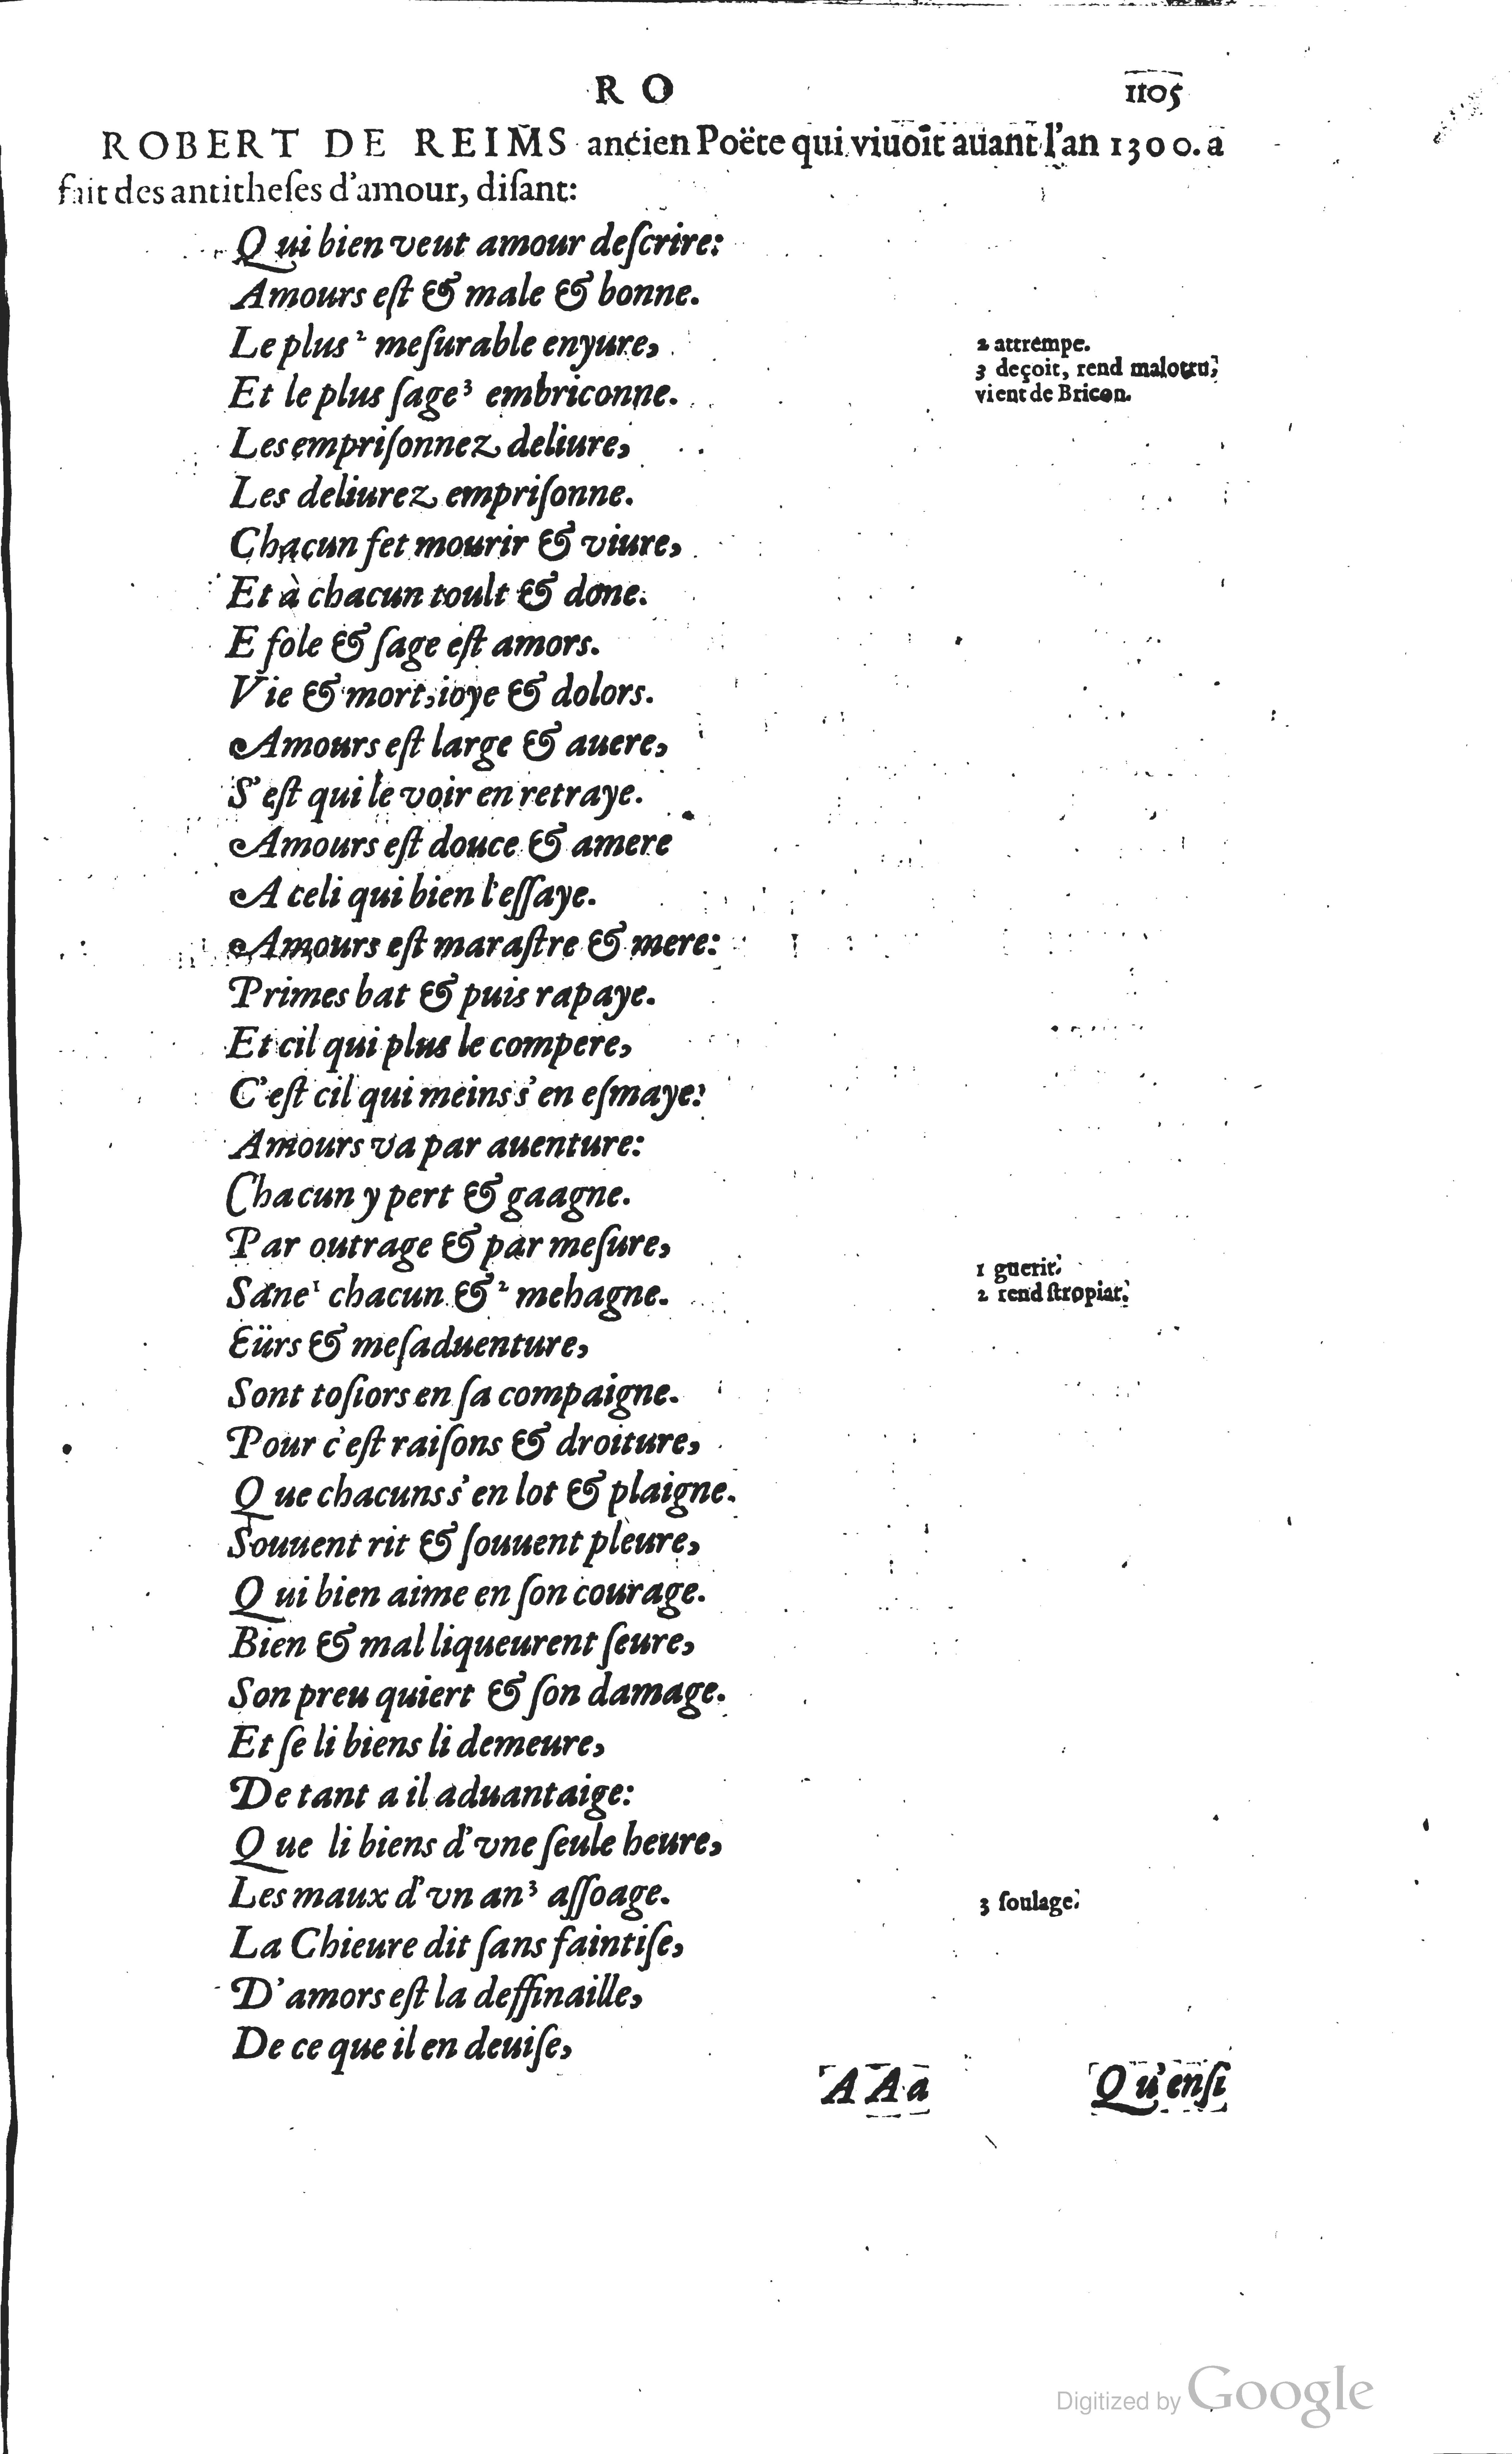 R O
1105
ROBERT DE REIMS ancien Poëte qui viuoit auant l'an 1300. a
fait des antitheſes d'amour, diſant:
Qui bien veut amour deſcrire:
Amours eſt & male & bonne.
Le plus ² meſurable enyure,
2 attrempe.
Et le plus ſage³ embriconne.
3 deçoit, rend malotru,
vient de Bricon.
Les empriſonnez deliure,
Les deliurez empriſonne.
Chacun fet mourir & viure,
Et à chacun toult & done.
E fole & ſage eſt amors.
Vie & mort, ioye & dolors.
Amours eſt large & auere,
S'eſt qui le voir en retraye.
Amours eſt douce & amere
A celi qui bien l'eſſaye.
Amours eſt maraſtre & mere:
Primes bat & puis rapaye.
Et cil qui plus le compere,
C'eſt cil qui meins s'en eſmaye:
Amours va par auenture:
Chacun y pert & gaagne.
Par outrage & par meſure,
Sane¹ chacun & ² mehagne.
1 guerit.
2 rend ſtropiat.
Eürs & meſaduenture,
Sont toſiors en ſa compaigne.
Pour c'eſt raiſons & droiture,
Que chacuns s'en lot & plaigne.
Souuent rit & ſouuent pleure,
Qui bien aime en ſon courage.
Bien & mal liqueurent ſeure,
Son preu quiert & ſon damage.
Et ſe li biens li demeure,
De tant a il aduantaige:
Que li biens d'vne ſeule heure,
Les maux d'vn an³ aſſoage.
3 ſoulage.
La Chieure dit ſans faintiſe,
D'amors eſt la deffinaille,
De ce que il en deuiſe,
A A a
Qu'enſi
Digitized by Google